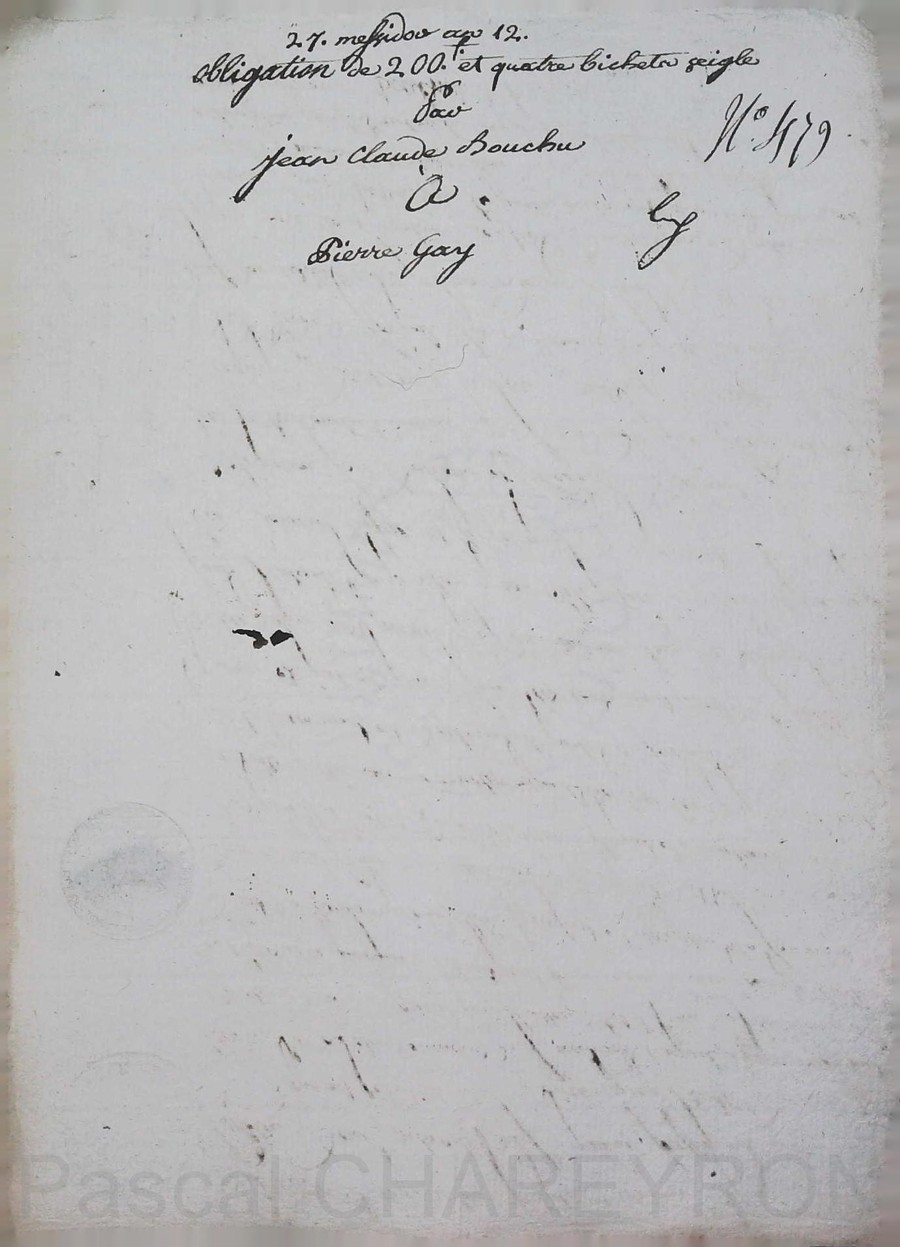 27. messidor an 12.
obligation de 200.f et quatre bichets seigle
Par
jean Claude Bouchu
A
Pierre Gay
N.o 479
Pascal CHAREYRON